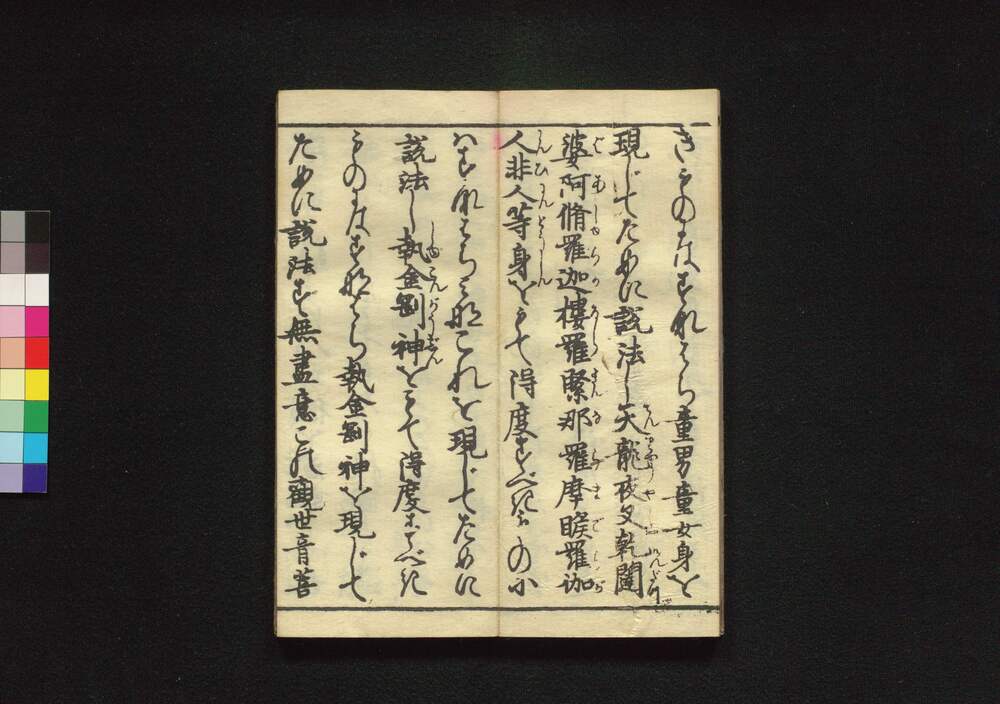 きものにはすなはち童男童女身を
現じてために説法し天龍夜叉乾闥
婆阿脩羅迦樓羅緊那羅摩睺羅伽
人非人等身をもて得度すべきものに
はすなはちみなこれを現じてために
説法し執金剛神をもて得度すべき
ものにはすなはち執金剛神を現じて
ために説法す無盡意この觀世音菩